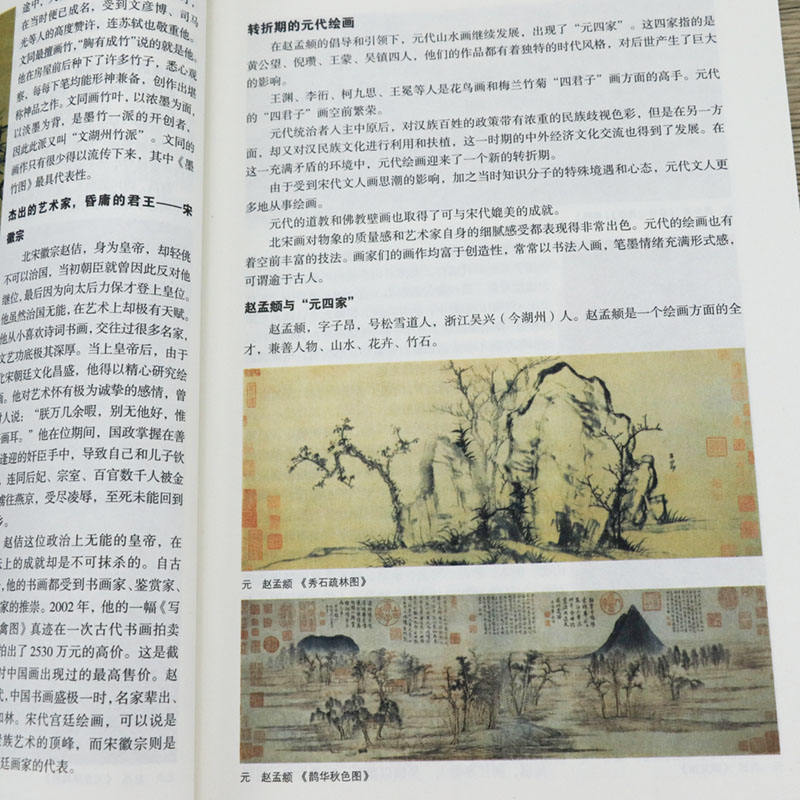 途中,
在当时便已成名,受到文彦博、司马
光等人的高度赞许,连苏轼也敬重他。
文同最擅画竹,“胸有成竹”说的就是他。
他在房屋前后种下了许多竹子,悉心观
察,每每下笔均能形神兼备,创作出堪
称神品之作。文同画竹叶,以浓墨为面,
以淡墨为背,是墨竹一派的开创者,
因此此派又叫“文湖州竹派”。文同的
画作只有很少得以流传下来,其中《墨
竹图》最具代表性。
杰出的艺术家,昏庸的君王——宋
徽宗
北宋徽宗赵佶,身为皇帝,却轻佻
不可以治国,当初朝臣就曾因此反对他
继位,最后因为向太后力保才登上皇位。
他虽然治国无能,在艺术上却极有天赋。
他从小喜欢诗词书画,交往过很多名家,
文艺功底极其深厚。当上皇帝后,由于
北宋朝廷文化昌盛,他得以精心研究绘
画。他对艺术怀有极为诚挚的感情,曾
对人说:“朕万几余暇,别无他好,惟
好画耳。”他在位期间,国政掌握在善
逢迎的奸臣手中,导致自己和儿子钦
连同后妃、宗室、百官数千人被金
往燕京,受尽凌辱,至死未能回到
乡。
赵佶这位政治上无能的皇帝,在
上的成就却是不可抹杀的。自古
,他的书画都受到书画家、鉴赏家、
家的推崇。2002年,他的一幅《写
禽图》真迹在一次古代书画拍卖
拍出了2530万元的高价。这是截
时中国画出现过的最高售价。赵
代,中国书画盛极一时,名家辈出、
如林。宋代宫廷绘画,可以说是
族艺术的顶峰,而宋徽宗则是
廷画家的代表。
转折期的元代绘画
在赵孟頫的倡导和引领下,元代山水画继续发展,出现了“元四家”。这四家指的是
黄公望、倪瓒、王蒙、吴镇四人,他们的作品都有着独特的时代风格,对后世产生了巨大
的影响。
王渊、李衎、柯九思、王冕等人是花鸟画和梅兰竹菊“四君子”画方面的高手。元代
的“四君子”画空前繁荣。
元代统治者人主中原后,对汉族百姓的政策带有浓重的民族歧视色彩,但是在另一方
面,却又对汉民族文化进行利用和扶植,这一时期的中外经济文化交流也得到了发展。在
这一充满矛盾的环境中,元代绘画迎来了一个新的转折期。
由于受到宋代文人画思潮的影响,加之当时知识分子的特殊境遇和心态,元代文人更
多地从事绘画。
元代的道教和佛教壁画也取得了可与宋代媲美的成就。
北宋画对物象的质量感和艺术家自身的细腻感受都表现得非常出色。元代的绘画也有
着空前丰富的技法。画家们的画作均富于创造性,常常以书法入画,笔墨情绪充满形式感,
可谓逾于古人。
赵孟頫与“元四家”
赵孟頫,字子昂,号松雪道人,浙江吴兴(今湖州)人。赵孟頫是一个绘画方面的全
才,兼善人物、山水、花卉、竹石。
元 赵孟頫《秀石疏林图》
元 赵孟頫《鹊华秋色图》